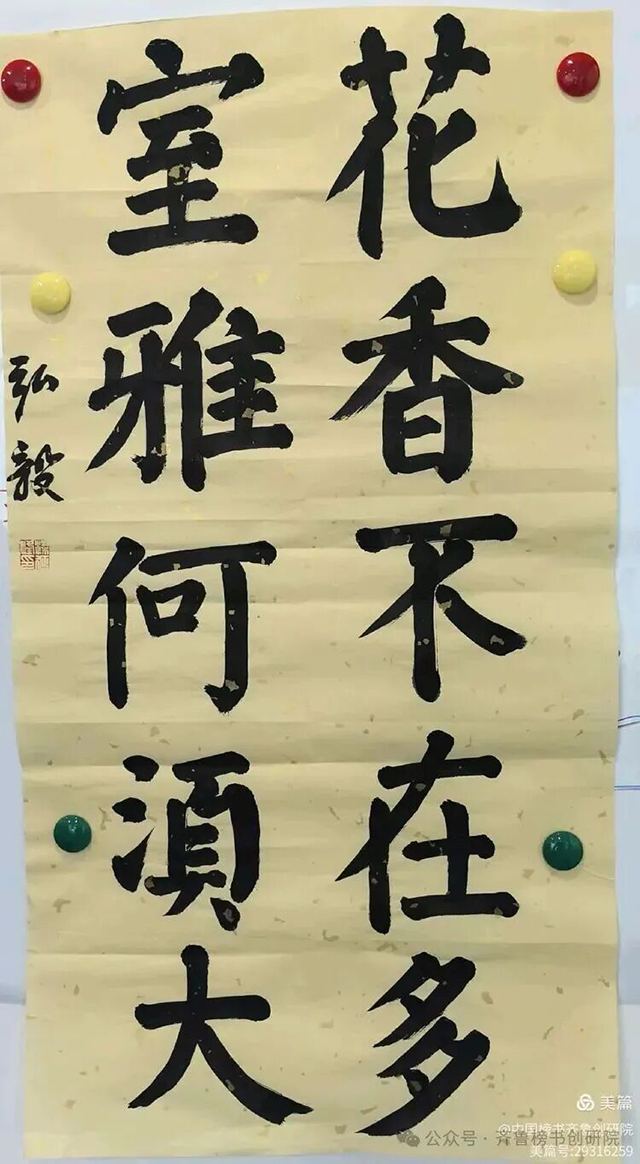 花香不在多
室雅何湏大
弘毅
美篇
@中国榜书齐鲁创研院
公众号·齐鲁榜书创研院
美篇号:29316259